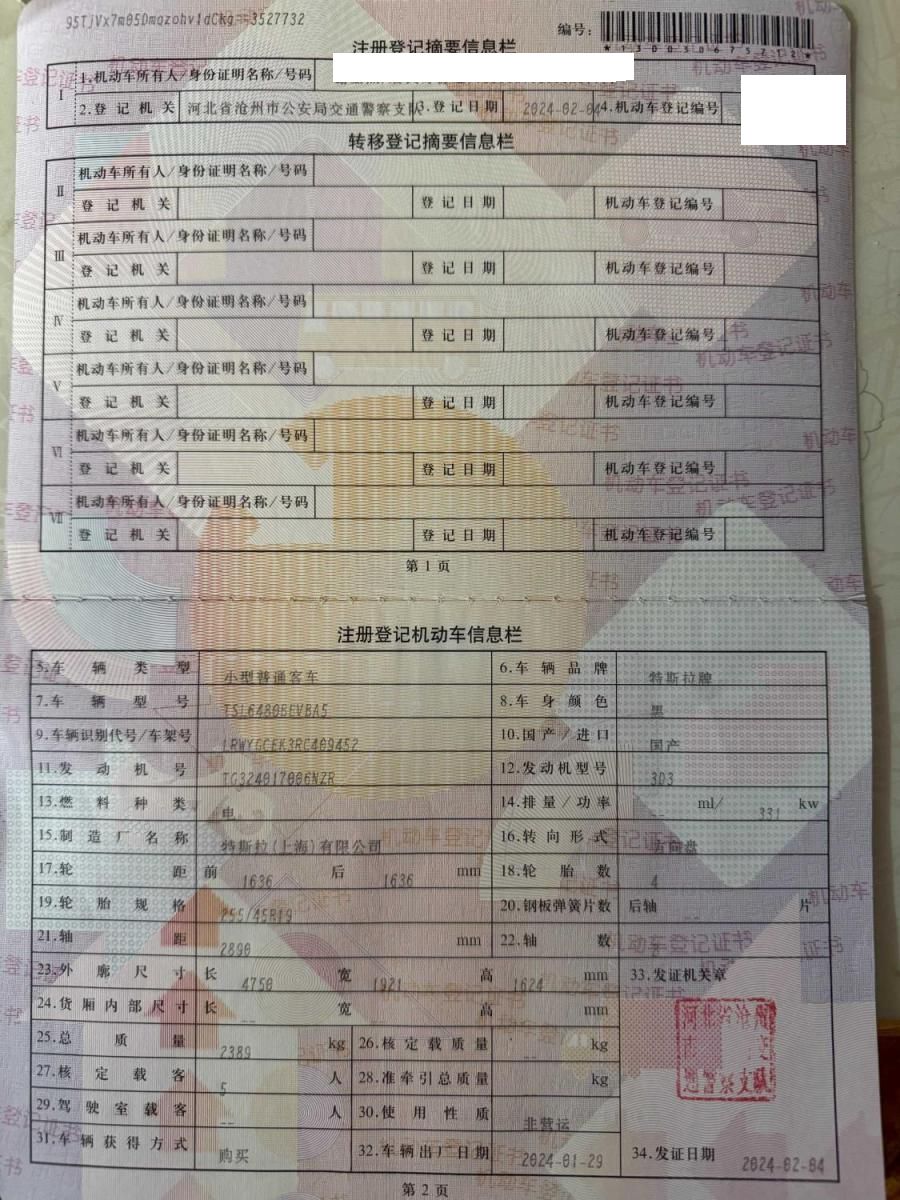 95TjVx7m05Dmqzohv1dCkg==3527732
编号:
*130030675212*
注册登记摘要信息栏
Ⅰ 1.机动车所有人/身份证明名称/号码
2.登记机关 河北省沧州市公安局交通警察支队 3.登记日期 2024-02-04 4.机动车登记编号
转移登记摘要信息栏
Ⅱ 机动车所有人/身份证明名称/号码
登记机关 登记日期 机动车登记编号
Ⅲ 机动车所有人/身份证明名称/号码
登记机关 登记日期 机动车登记编号
Ⅳ 机动车所有人/身份证明名称/号码
登记机关 登记日期 机动车登记编号
Ⅴ 机动车所有人/身份证明名称/号码
登记机关 登记日期 机动车登记编号
Ⅵ 机动车所有人/身份证明名称/号码
登记机关 登记日期 机动车登记编号
Ⅶ 机动车所有人/身份证明名称/号码
登记机关 登记日期 机动车登记编号
第 1 页
注册登记机动车信息栏
5.车辆类型 小型普通客车 6.车辆品牌 特斯拉牌
7.车辆型号 TSL6480BEVBA5 8.车身颜色 黑
9.车辆识别代号/车架号 LRWYGCEK3RC409452 10.国产/进口 国产
11.发动机号 TG324017006NZR 12.发动机型号 3D3
13.燃料种类 电 14.排量/功率 -- ml/ 331 kw
15.制造厂名称 特斯拉(上海)有限公司 16.转向形式 方向盘
17.轮距 前 1636 后 1636 mm 18.轮胎数 4
19.轮胎规格 255/45R19 20.钢板弹簧片数 后轴 -- 片
21.轴距 2890 mm 22.轴数
23.外廓尺寸 长 4750 宽 1921 高 1624 mm 33.发证机关章
24.货厢内部尺寸 长 -- 宽 -- 高 -- mm
25.总质量 2389 kg 26.核定载质量 -- kg
27.核定载客 5 人 28.准牵引总质量 kg
29.驾驶室载客 -- 人 30.使用性质 非营运
31.车辆获得方式 购买 32.车辆出厂日期 2024-01-29 34.发证日期 2024-02-04
第 2 页